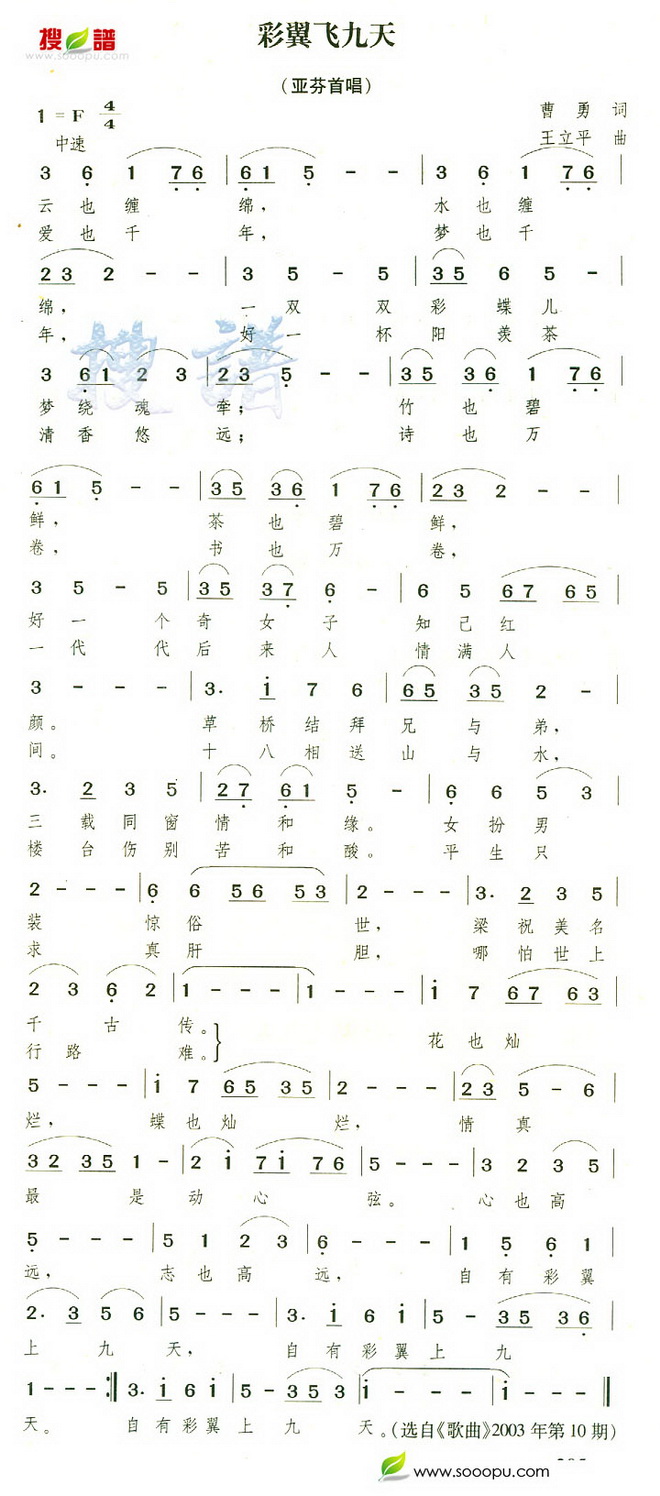 搜谱
www.sooopu.com
彩翼飞九天
(亚芬首唱)
1 = F 4/4
曹 勇 词
中速
王立平 曲
3 6 1 7 6 | 6 1 5 - - | 3 6 1 7 6 |
云 也 缠 绵, 水 也 缠
爱 也 千 年, 梦 也 千
2 3 2 - - | 3 5 - 5 | 3 5 6 5 - |
绵, 一 双 双 彩 蝶 儿
年, 好 一 杯 阳 羡 茶
搜谱
3 6 1 2 3 | 2 3 5 - - | 3 5 3 6 1 7 6 |
梦 绕 魂 牵; 竹 也 碧
清 香 悠 远; 诗 也 万
6 1 5 - - | 3 5 3 6 1 7 6 | 2 3 2 - - |
鲜, 茶 也 碧 鲜,
卷, 书 也 万 卷,
3 5 - 5 | 3 5 3 7 6 - | 6 5 6 7 6 5 |
好 一 个 奇 女 子 知 己 红
一 代 代 后 来 人 情 满 人
3 - - - | 3. i 7 6 | 6 5 3 5 2 - |
颜。 草 桥 结 拜 兄 与 弟,
间。 十 八 相 送 山 与 水,
3. 2 3 5 | 2 7 6 1 5 - | 6 6 5 3 |
三 载 同 窗 情 和 缘。 女 扮 男
楼 台 伤 别 苦 和 酸。 平 生 只
2 - - - | 6 6 5 6 5 3 | 2 - - - | 3. 2 3 5 |
装 惊 俗 世, 梁 祝 美 名
求 真 肝 胆, 哪 怕 世 上
2 3 6 2 | 1 - - - | 1 - - - | i 7 6 7 6 3 |
千 古 传。
花 也 灿
行 路 难。
5 - - - | i 7 6 5 3 5 | 2 - - - | 2 3 5 - 6 |
烂, 蝶 也 灿 烂, 情 真
3 2 3 5 1 - | 2 i 7 i 7 6 | 5 - - - | 3 2 3 5 |
最 是 动 心 弦。 心 也 高
5 - - - | 5 1 2 3 | 6 - - - | 1 5 6 1 |
远, 志 也 高 远, 自 有 彩 翼
2. 3 5 6 | 5 - - - | 3. i 6 i | 5 - 3 5 3 6 |
上 九 天, 自 有 彩 翼 上 九
1 - - :| 3. i 6 i | 5 - 3 5 3 | i - - - | i - - - ||
天。 自 有 彩 翼 上 九 天。(选自《歌曲》2003 年第 10 期)
www.sooopu.com